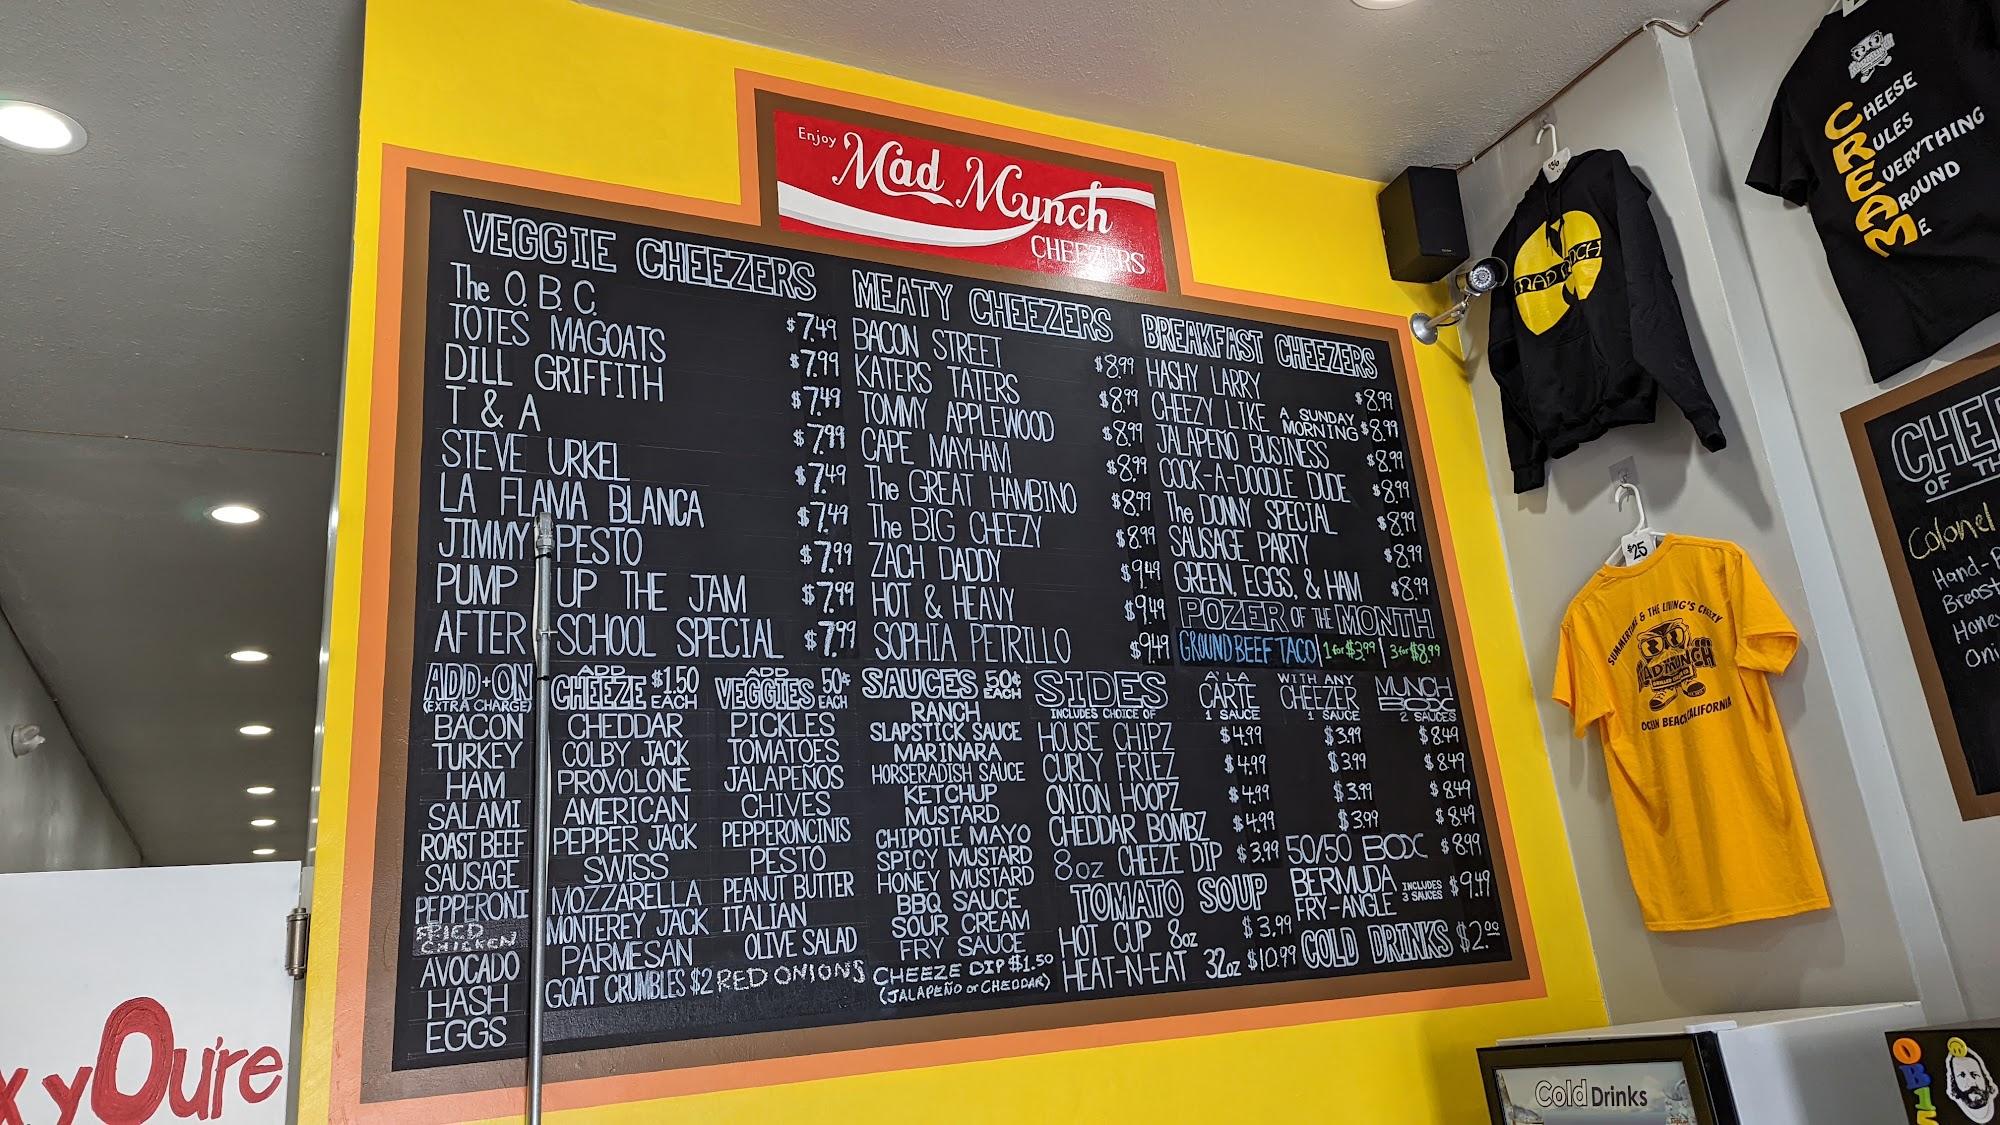 Enjoy
Mad Munch
CHEEZERS
VEGGIE CHEEZERS
The O.B.C. $7.49
TOTES MAGOATS $7.99
DILL GRIFFITH $7.49
T & A $7.99
STEVE URKEL $7.49
LA FLAMA BLANCA $7.49
JIMMY PESTO $7.99
PUMP UP THE JAM $7.99
AFTER SCHOOL SPECIAL $7.99
MEATY CHEEZERS
BACON STREET $8.99
KATERS TATERS $8.99
TOMMY APPLEWOOD $8.99
CAPE MAYHAM $8.99
The GREAT HAMBINO $8.99
The BIG CHEEZY $8.99
ZACH DADDY $9.49
HOT & HEAVY $9.49
SOPHIA PETRILLO $9.49
BREAKFAST CHEEZERS
HASHY LARRY $8.99
CHEEZY LIKE A SUNDAY MORNING $8.99
JALAPEÑO BUSINESS $8.99
COCK-A-DOODLE DUDE $8.99
The DONNY SPECIAL $8.99
SAUSAGE PARTY $8.99
GREEN, EGGS, & HAM $8.99
POZER OF THE MONTH
GROUND BEEF TACO | 1 for $3.99 | 3 for $8.99
ADD-ON
(EXTRA CHARGE)
BACON
TURKEY
HAM
SALAMI
ROAST BEEF
SAUSAGE
PEPPERONI
CHICKEN
AVOCADO
HASH
EGGS
ADD CHEEZE $1.50 EACH
CHEDDAR
COLBY JACK
PROVOLONE
AMERICAN
PEPPER JACK
SWISS
MOZZARELLA
MONTEREY JACK
PARMESAN
GOAT CRUMBLES $2
ADD VEGGIES 50¢ EACH
PICKLES
TOMATOES
JALAPEÑOS
CHIVES
PEPPERONCINIS
PESTO
PEANUT BUTTER
ITALIAN
OLIVE SALAD
RED ONIONS
SAUCES 50¢ EACH
RANCH
SLAPSTICK SAUCE
MARINARA
HORSERADISH SAUCE
KETCHUP
MUSTARD
CHIPOTLE MAYO
SPICY MUSTARD
HONEY MUSTARD
BBQ SAUCE
SOUR CREAM
FRY SAUCE
CHEEZE DIP $1.50
(JALAPEÑO or CHEDDAR)
SIDES
INCLUDES CHOICE OF
À LA CARTE
1 SAUCE
WITH ANY CHEEZER
1 SAUCE
MUNCH BOX
2 SAUCES
HOUSE CHIPZ $4.99 $3.99 $8.49
CURLY FRIEZ $4.99 $3.99 $8.49
ONION HOOPZ $4.99 $3.99 $8.49
CHEDDAR BOMBZ $4.99 $3.99 $8.49
8oz CHEEZE DIP $3.99
50/50 BOX $8.99
BERMUDA FRY-ANGLE INCLUDES 3 SAUCES $9.49
TOMATO SOUP
HOT CUP 8oz $3.99
HEAT-N-EAT 32oz $10.99
COLD DRINKS $2.00
MAD MUNCH
CHEESE
RULES
EVERYTHING
AROUND
ME
$25
SUMMERTIME & THE LIVING'S CHEEZY
MAD MUNCH
GRILLED CHEEZERS
OCEAN BEACH, CALIFORNIA
OF TH
Colonel
Hand-B
Breast
Honey
Oni
Cold Drinks
yOu're